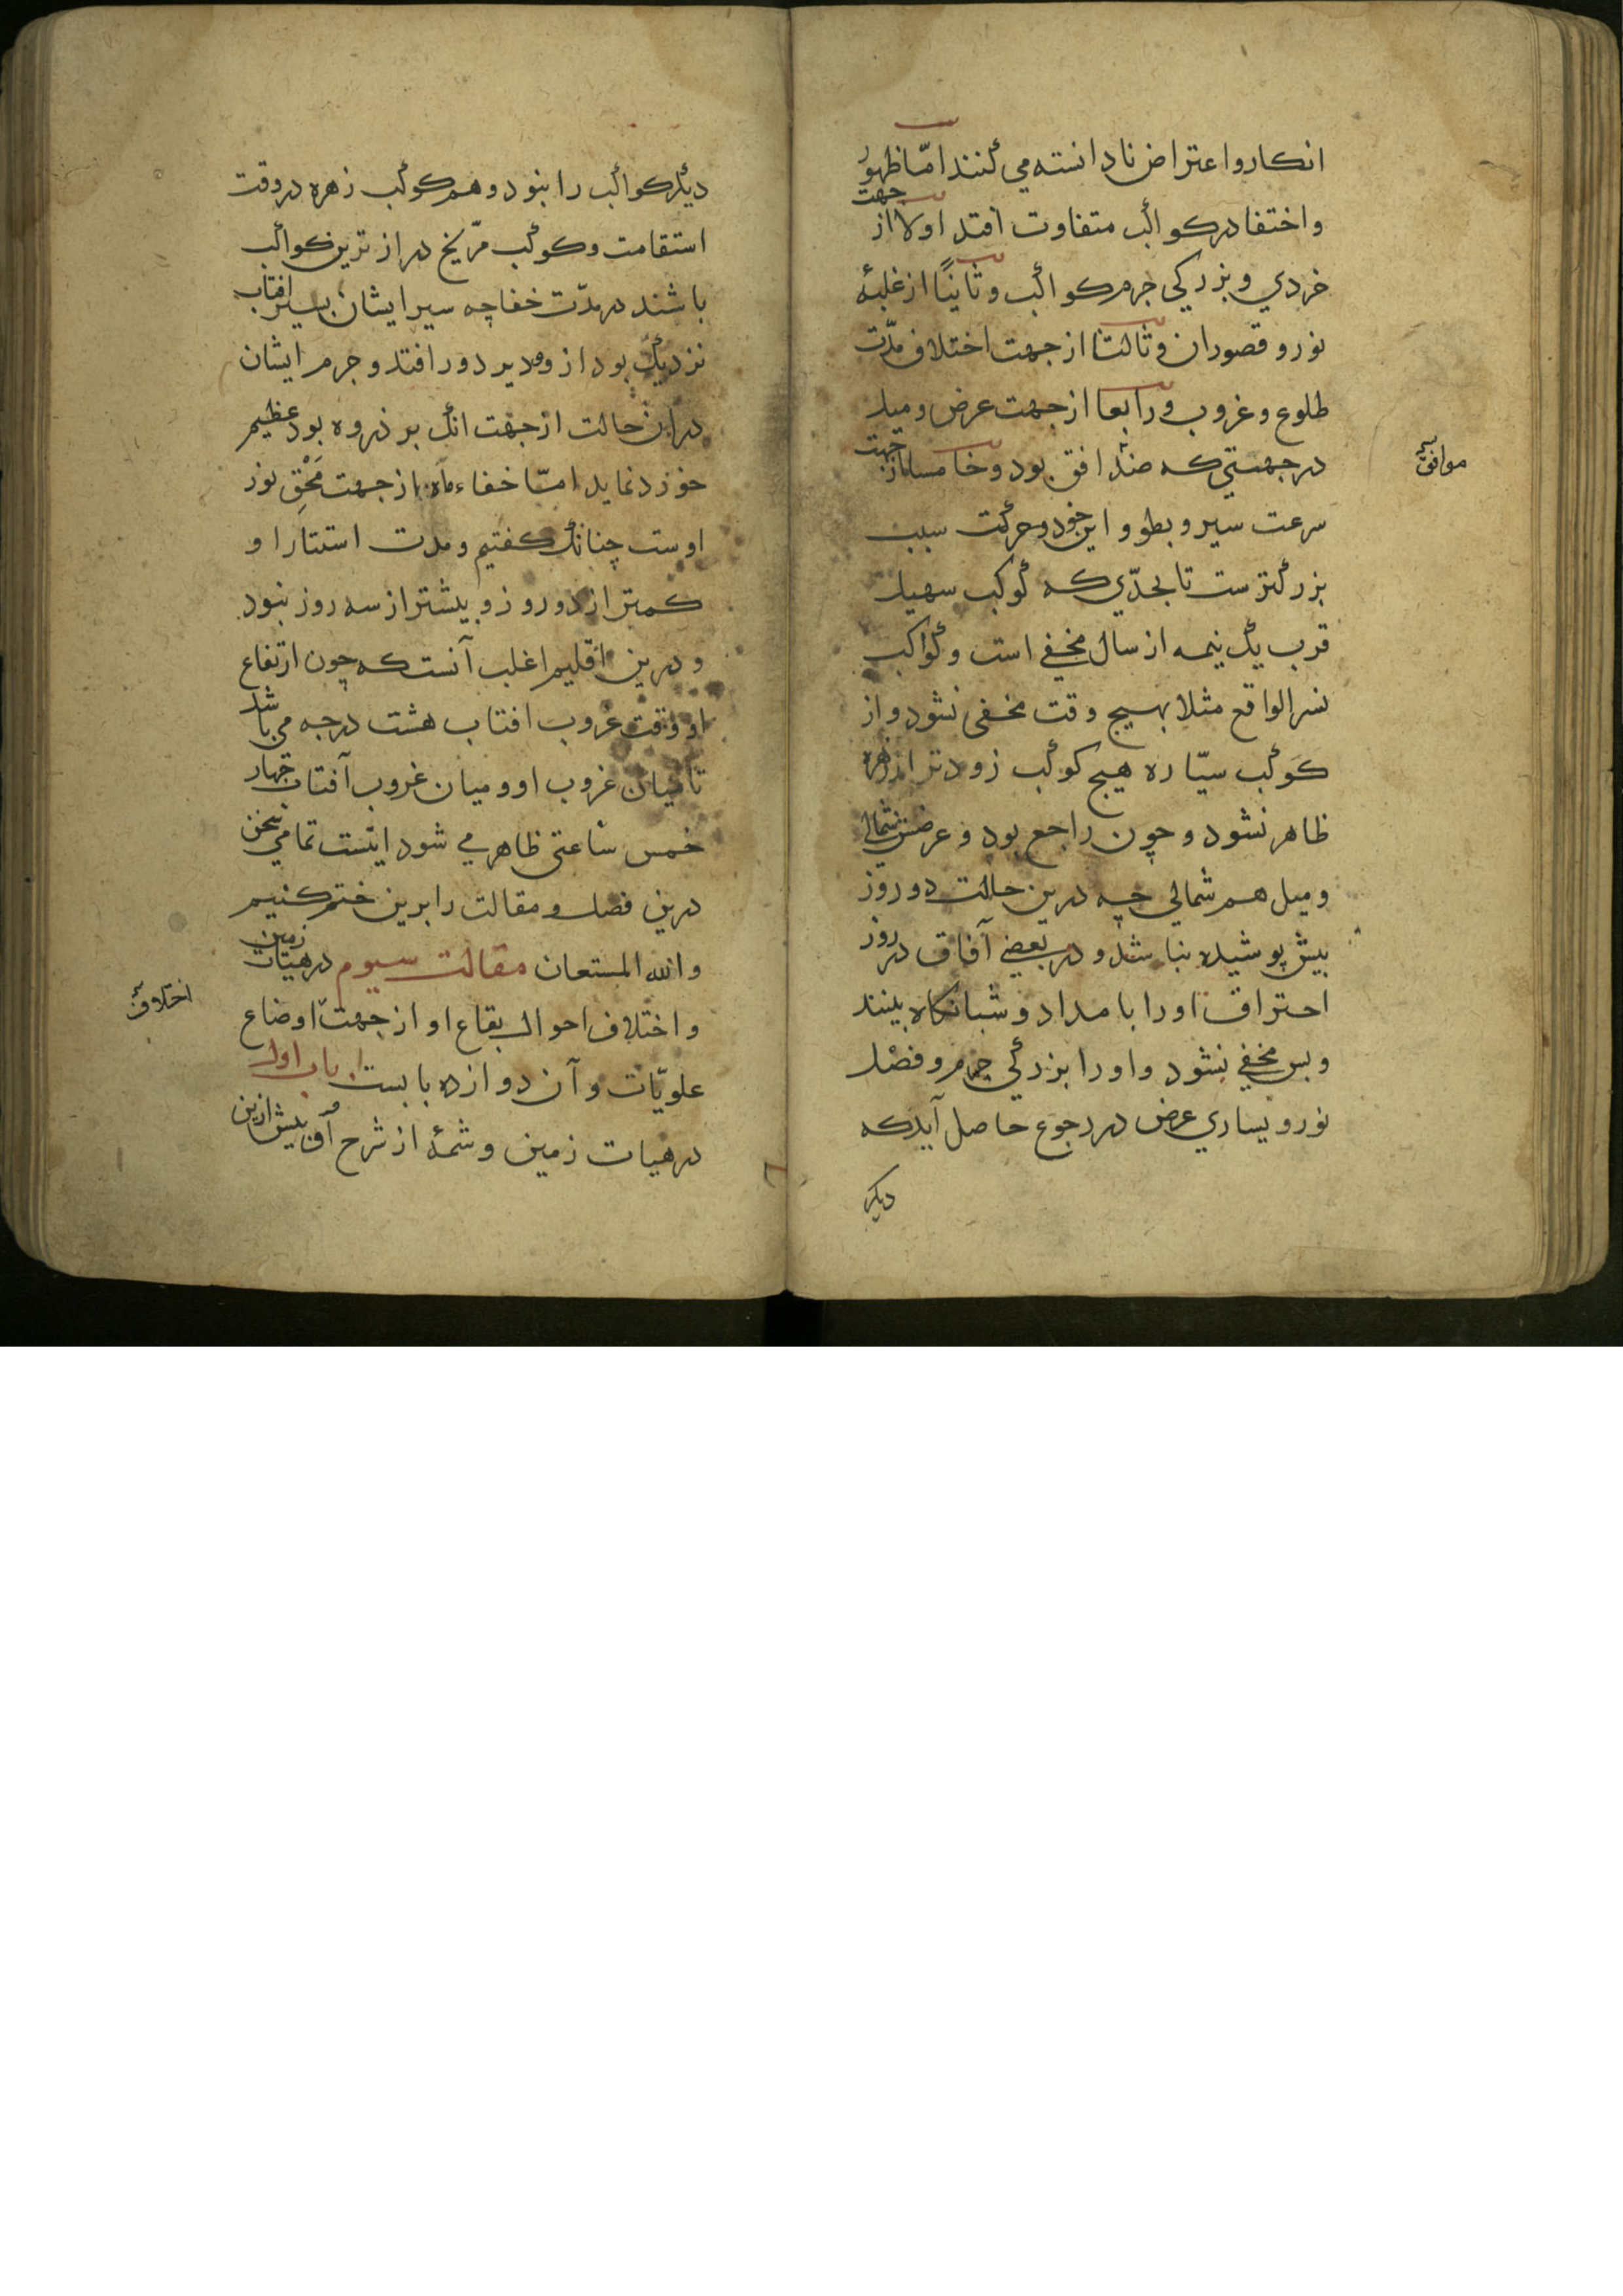 انکار و اعتراض نادانسته می کنند امّا ظهور
و اختفا در کواکب متفاوت افتد اولا از جهت
خردی و بزرکی جرم کواکب و ثانیًا از غلبهٔ
نور و قصور ان و ثالثا از جهت اختلاف مدّت
طلوع و غروب و رابعا از جهت عرض و میل
در جهتی که ضدّ افق بود و خامسا از جهت
موافق
سرعت سیر و بطو و این خود و حرکت سبب
بزرکترست تا بحدّی که کوکب سهیل
قرب یک نیمه از سال مخفی است و کواکب
نسر الواقع مثلا بهیچ وقت مخفی نشود و از
کوکب سیّاره هیچ کوکب زودتر از زهره
ظاهر نشود و چون راجع بود و عرضش شمالی
و میل هم شمالی چه درین حالت دو روز
بیش پوشیده نباشد و در بعضی آفاق در روز
احتراق او را بامداد و شبانکاه بینند
و بس مخفی نشود و او را بزرکی جرم و فضل
نور و بسیاری عرض در رجوع حاصل آید که
دیکر
دیکر کواکب را نبود و هم کوکب زهره در وقت
استقامت و کوکب مرّیخ درازترین کواکب
باشند در مدّت خفا چه سیر ایشان بسیر افتاب
نزدیک بود از و دیر دور افتد و جرم ایشان
در ان حالت از جهت انک بر ذروه بود عظیم
خورد نماید امّا خفاء ماه از جهت مَحْقِ نور
اوست چنانک کفتیم و مدت استتار او
کمتر از دو روز و بیشتر از سه روز نبود
و درین اقلیم اغلب آنست که چون ارتفاع
او وقت غروب افتاب هشت درجه می باشد
تا میان غروب او و میان غروب آفتاب چهار
خمس ساعتی ظاهر می شود اینست تمامی سخن
درین فصل و مقالت را برین ختم کنیم
و الله المستعان مقالت سیوم در هیات زمین
و اختلاف احوال بقاع او از جهت اوضاع
اختلاف
علویّات و آن دوازده بابست باب اول
در هیات زمین و شمهٔ از شرح آن پیش ازین